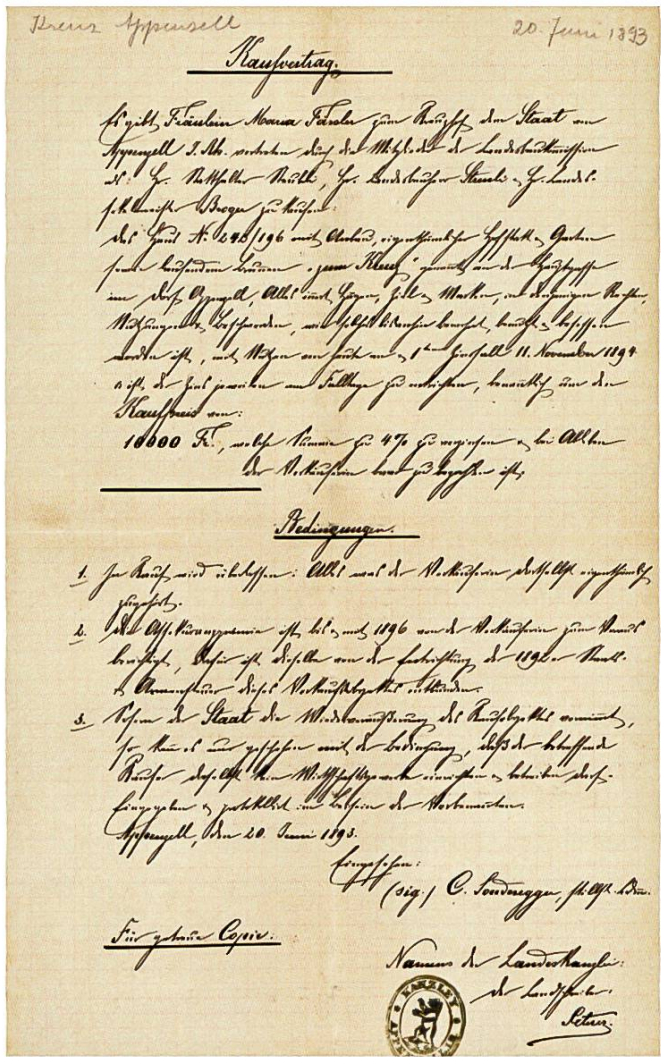 Kreuz Appenzell
20. Juni 1893
Kaufvertrag.
Es gibt Fräulein Maria Fässler zum Kreuz dem Staat von
Appenzell I. Rh. vertreten durch die Mitglieder der Landesbaukommission
als: H. Statthalter Steuble, Hr. Landesbauherr & H. Landes-
seckelmeister Broger zu kaufen:
das Haus No. 242/196 mit Anbau, eigenthümlicher Hofstatt & Garten
sowie laufendem Brunnen "zum Kreuz" genannt an der Hauptgasse
im Dorf Appenzell, Alles innert Hägen, Zill & Marken, in denjenigen Rechten,
Nutzungen & Beschwerden, wie solches bisanhin bewohnt, benutzt & besessen
worden ist, mit Nutzen von heute an & 1ten Zinsfall 11. November 1894
& ist der Zins jeweilen am Falltage zu entrichten, benanntlich um den
Kaufpreis von:
10000 Fr., welche Summe zu 4% zu verzinsen & bei
der Verkäuferin baar zu bezahlen ist.
Bedingungen.
1. In Kauf wird überlassen: Alles was der Verkäuferin daselbst eigenthümlich
zugehört.
2. Die Assekuranzprämie ist bis & mit 1896 von der Verkäuferin zum Voraus
berichtigt, dafür ist dieselbe von der Entrichtung der 1892er Staats-
& Armensteuer dieses Verkaufsobjektes entbunden.
3. Sofern der Staat die Wiederveräußerung des Kaufobjektes vornimmt,
so kann es nur geschehen mit der Bedingung, daß der betreffende
Käufer daselbst kein Wirthschaftsgewerbe einrichten & betreiben darf.
Eingegeben & protokollirt im Beisein der Vorbenannten.
Appenzell, den 20. Juni 1893.
Eingesehen:
(sig.) C. Sonderegger, stillst. Ldm.
Für getreue Copie:
Namens der Landeskanzlei:
der Landschreiber:
KANZLEY